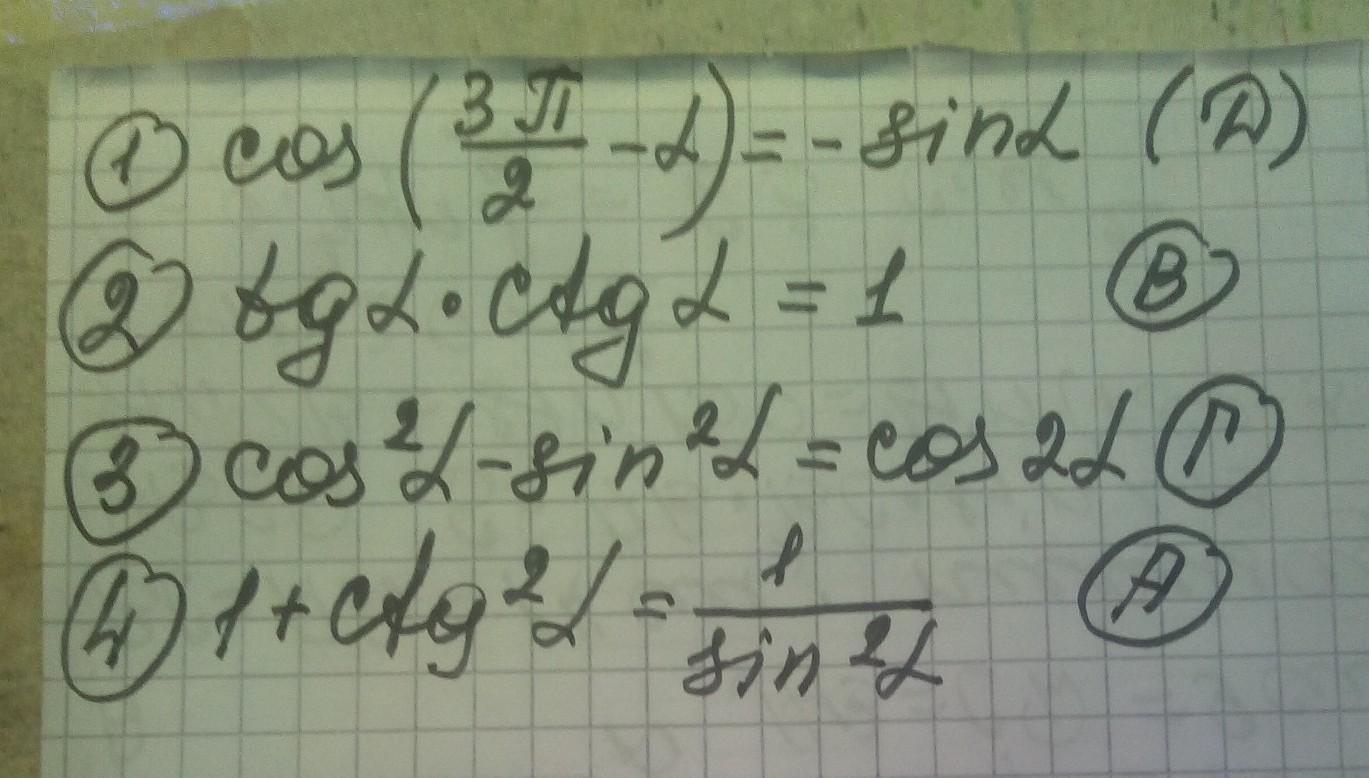 ① cos(3π/2 - α) = - sinα (Д)
② tgα · ctgα = 1 Ⓑ
③ cos²α - sin²α = cos2α Ⓖ
④ 1 + ctg²α = 1/sin²α Ⓐ